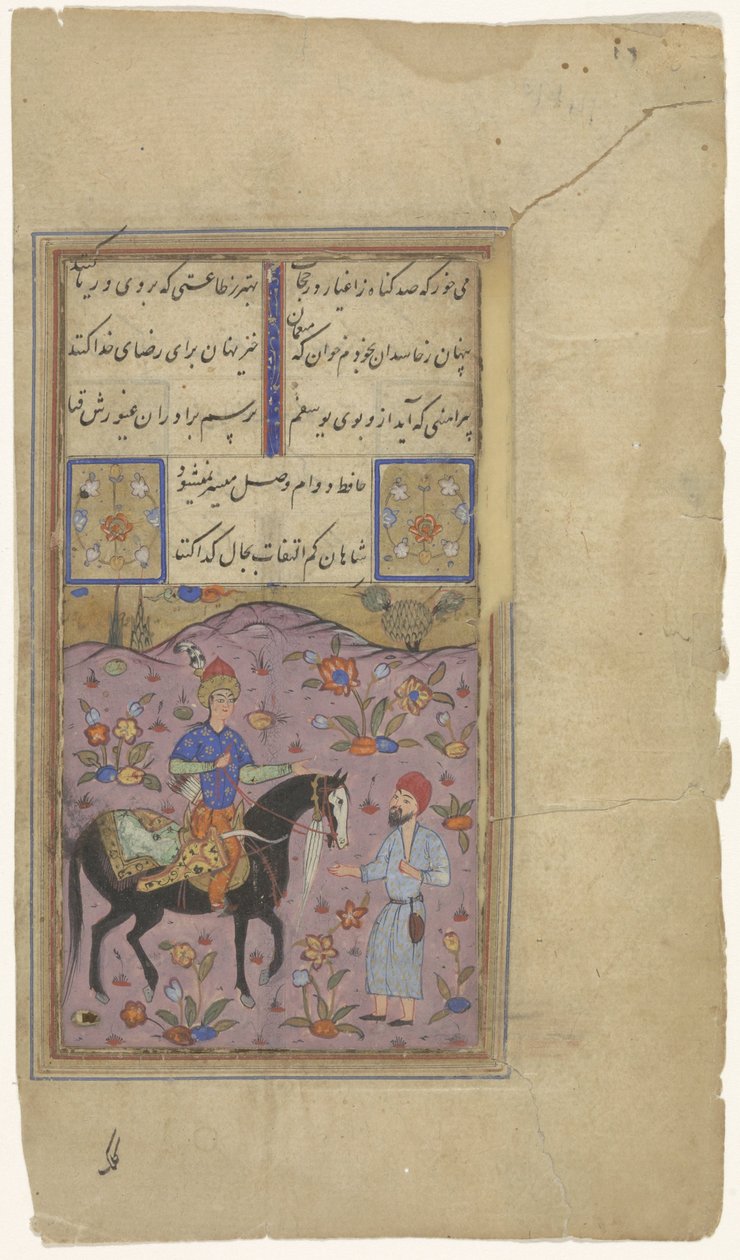 می خور که صد کناه ز اغیار در حجاب بهتر ز طاعتی که بروی و ریا کنند
پنهان ز حاسدان بخودم خوان که منعمان خیر نهان برای رضای خدا کنند
پیراهنی که آید ازو بوی یوسفم ترسم برادران غیورش قبا
حافظ دوام وصل میسر نمیشود
شاهان کم التفات بحال کدا کنند
کلک